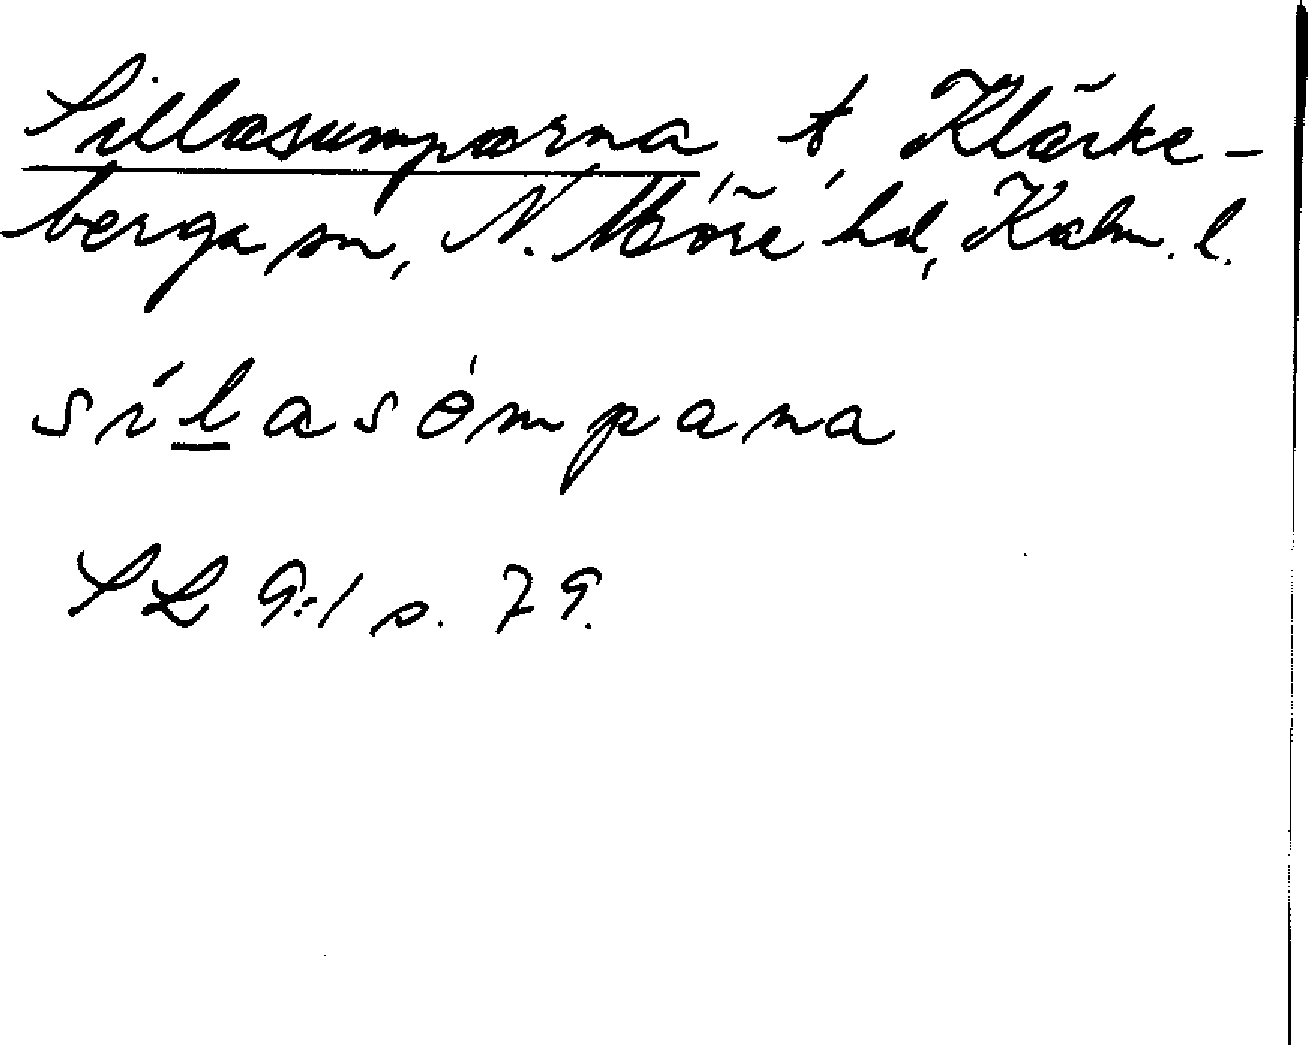 Sillasumparna, t, Kläcke-
berga sn, N. Möre hd, Kalm. l.
sílasómpana
SL 9:1 s. 79.